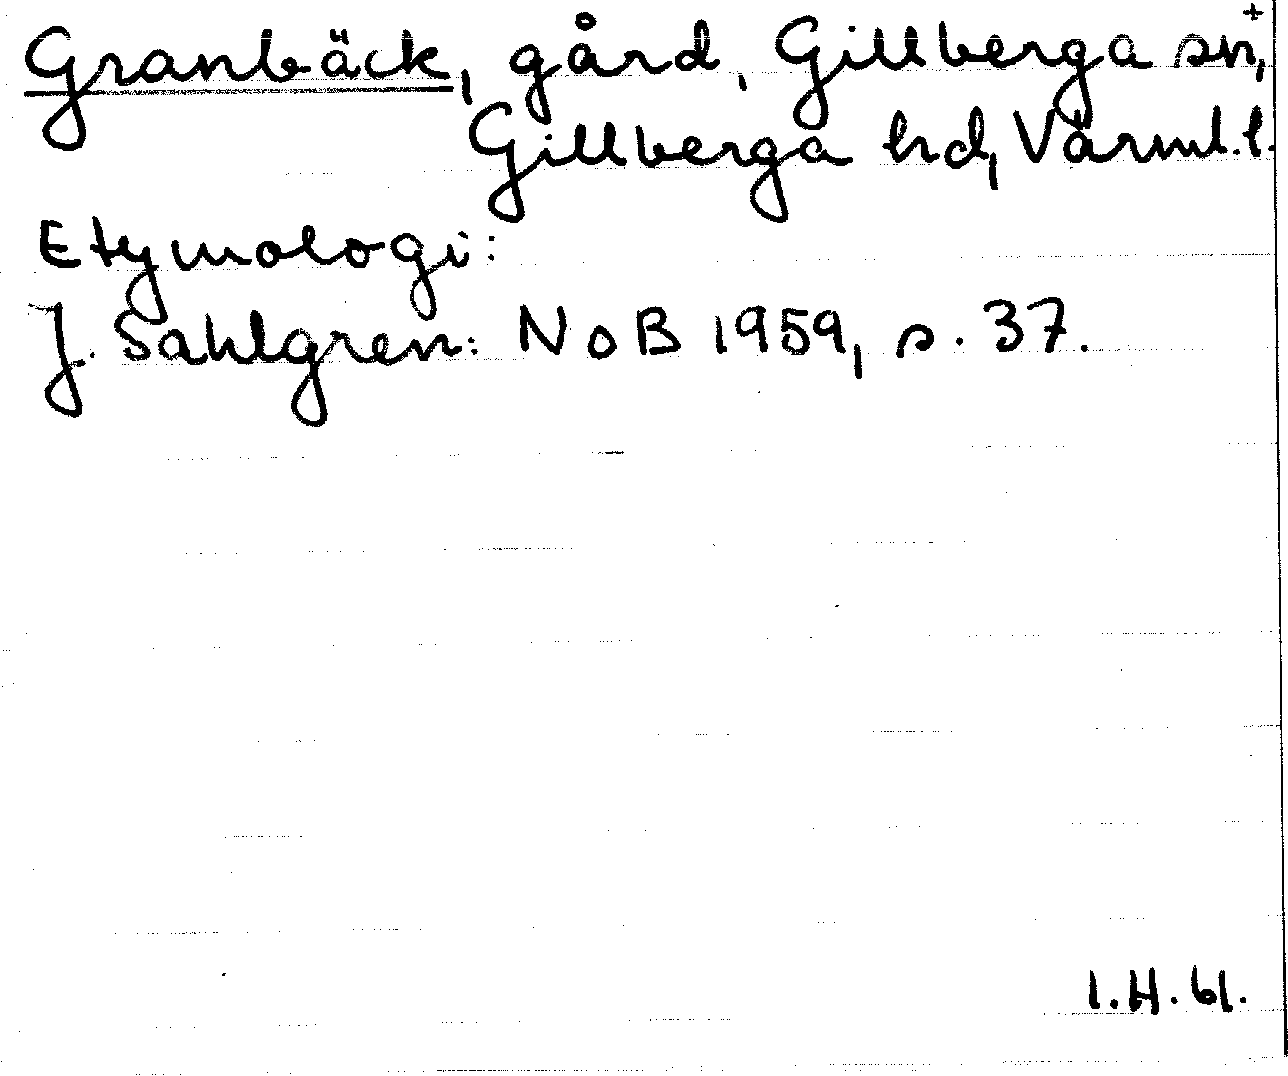 Granbäck, gård, Gillberga sn, +
Gillberga hd, Värml. l.
Etymologi:
J. Sahlgren: NoB 1959, s. 37.
I.H. 61.